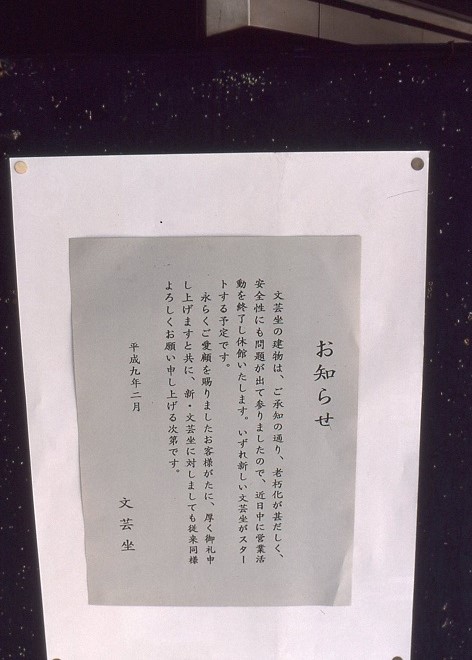 お知らせ
文芸坐の建物は、ご承知の通り、老朽化が甚だしく、
安全性にも問題が出て参りましたので、近日中に営業活
動を終了し休館いたします。いずれ新しい文芸坐がスター
トする予定です。
永らくご愛顧を賜りましたお客様がたに、厚く御礼申
し上げますと共に、新・文芸坐に対しましても従来同様
よろしくお願い申し上げる次第です。
平成九年二月
文芸坐